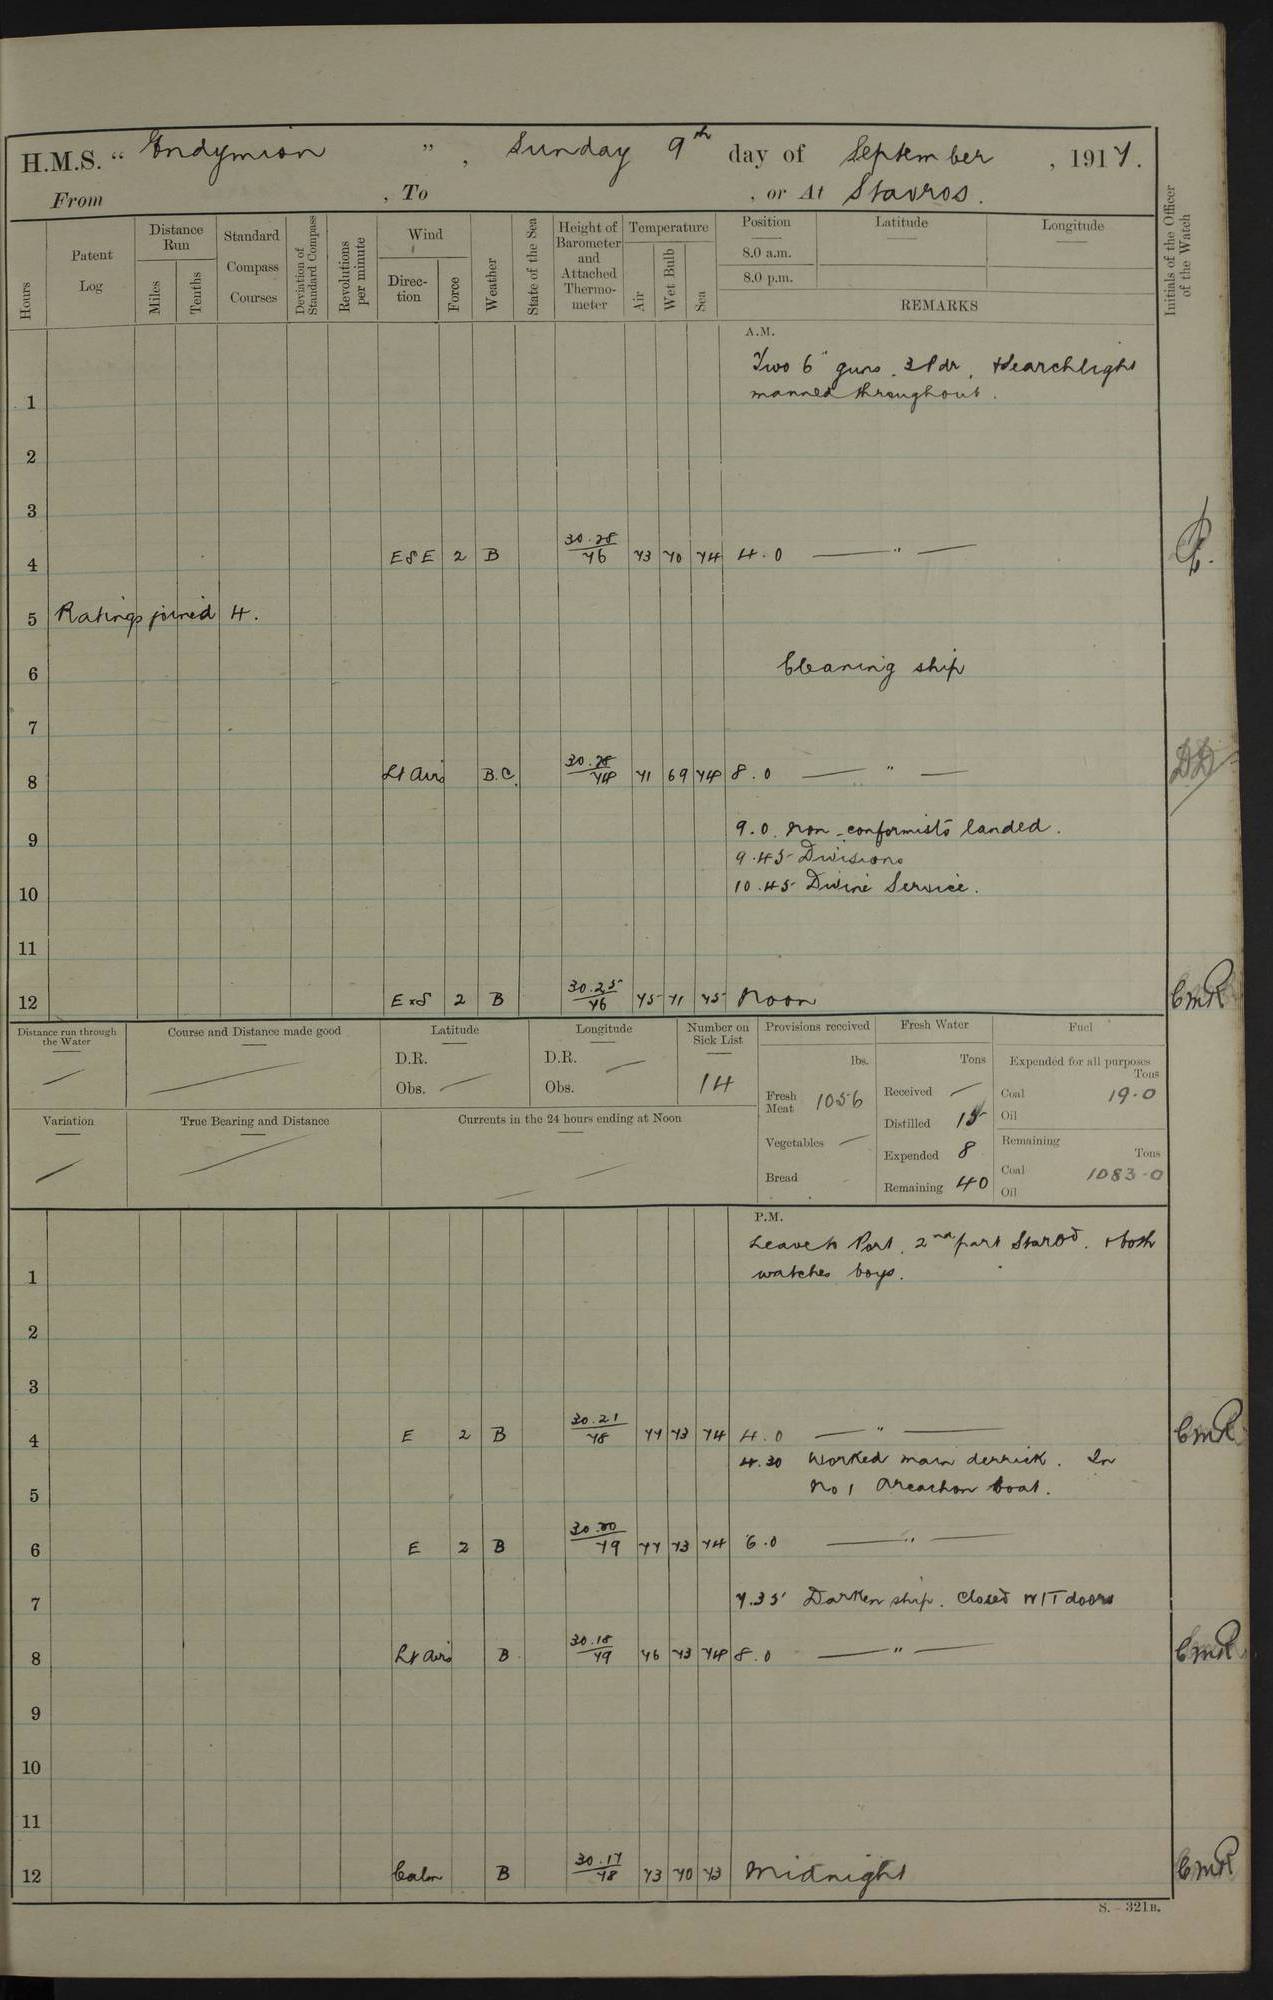 H.M.S. " Endymion " , Sunday 9th day of September , 1917.
From , To , or At Stavros.
Hours
Patent Log
Distance Run
Miles
Tenths
Standard Compass Courses
Deviation of Standard Compass
Revolutions per minute
Wind
Direc-tion
Force
Weather
State of the Sea
Height of Barometer and Attached Thermo-meter
Temperature
Air
Wet Bulb
Sea
Position
8.0 a.m.
8.0 p.m.
Latitude
Longitude
REMARKS
Initials of the Officer of the Watch
A.M.
Two 6" guns. 3 Pdr. + Searchlight
1 manned throughout.
2
3
4 ESE 2 B 30.28/76 73 70 74 4.0 — " —
5 Ratings joined 4.
6 Cleaning ship
7
8 Lt Airs B.C. 30.28/74 71 69 74 8.0 — " — DD
9.0. Non-conformists landed.
9
9.45 Divisions
10 10.45 Divine Service.
11
12 ExS 2 B 30.25/76 75 71 75 Noon CMR
Distance run through the Water
Course and Distance made good
Latitude
D.R.
Obs.
Longitude
D.R.
Obs.
Number on Sick List
14
Provisions received
lbs.
Fresh Meat 1056
Vegetables
Bread
Fresh Water
Tons
Received
Distilled 15
Expended 8
Remaining 40
Fuel
Expended for all purposes
Tons
Coal 19.0
Oil
Remaining
Tons
Coal 1083.0
Oil
Variation
True Bearing and Distance
Currents in the 24 hours ending at Noon
P.M.
Leave to Port. 2nd part Starbd. + both
1 watches boys.
2
3
4 E 2 B 30.21/78 77 73 74 4.0 — " — CMR
4.30 Worked main derrick. In
5 No 1 Arcachon boat.
6 E 2 B 30.20/79 77 73 74 6.0 — " —
7 7.35 Darken ship. Closed W/T doors
8 Lt Airs B. 30.18/79 76 73 74 8.0 — " — CMR
9
10
11
12 Calm B 30.17/78 73 70 73 Midnight CMR
S. – 321B.